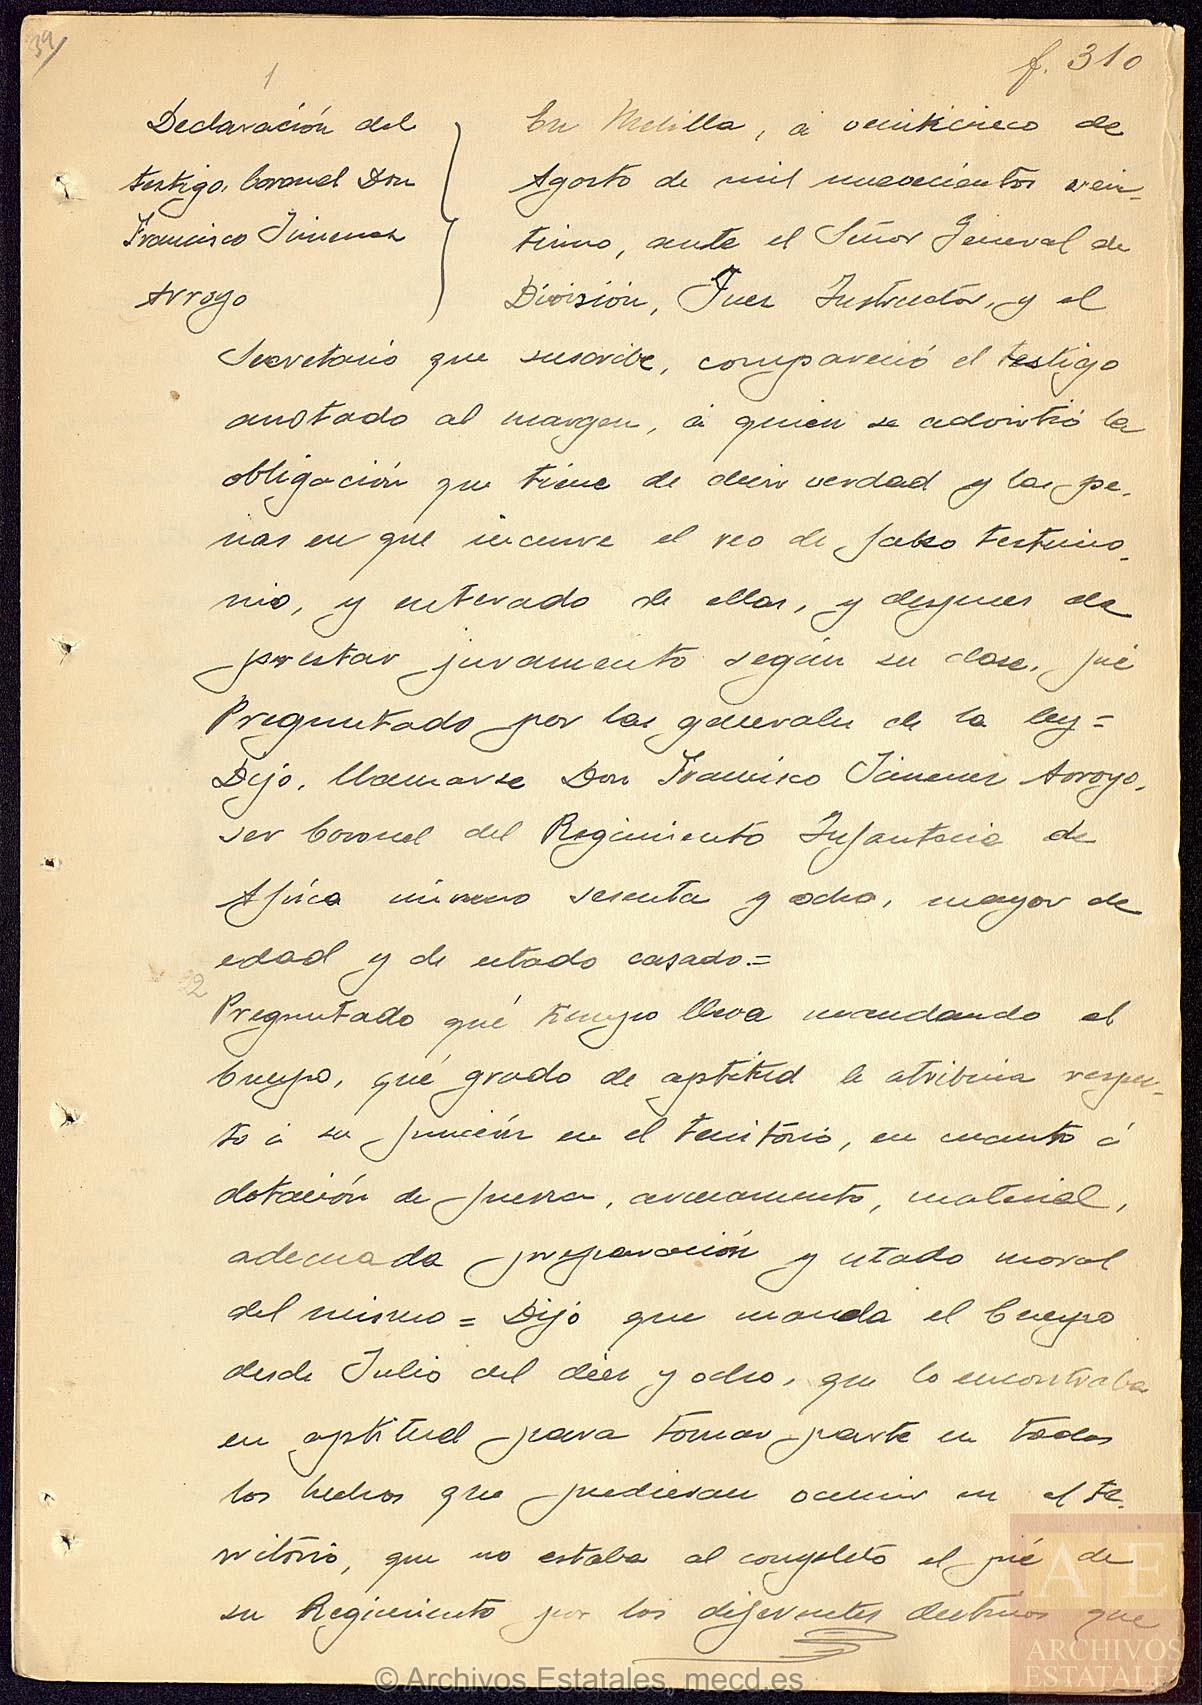 39
f. 310
1
Declaración del
testigo, Coronel Don
Francisco Jimenez
Arroyo
En Melilla, á veinticinco de
Agosto de mil novecientos vein-
tiuno, ante el Señor General de
División, Juez Instructor, y el
Secretario que suscribe, compareció el testigo
anotado al margen, á quien se advirtió la
obligación que tiene de decir verdad y las pe-
nas en que incurre el reo de falso testimo-
nio, y enterado de ellas, y despues de
prestar juramento según su clase, fué
Preguntado por las generales de la ley=
Dijo, llamarse Don Francisco Jimenez Arroyo,
ser Coronel del Regimiento Infantería de
Africa número sesenta y ocho, mayor de
edad y de estado casado.=
22
Preguntado qué tiempo lleva mandando el
Cuerpo, qué grado de aptitud le atribuia respec-
to á su función en el territorio, en cuanto á
dotación de fuerza, armamento, material,
adecuada preparación y estado moral
del mismo = Dijo que manda el Cuerpo
desde Julio del diez y ocho, que lo encontraba
en aptitud para tomar parte en todos
los hechos que pudieran ocurrir en el te-
rritorio, que no estaba al completo el pié de
su Regimiento por los diferentes destinos que
AE
ARCHIVOS
ESTATALES
© Archivos Estatales, mecd.es